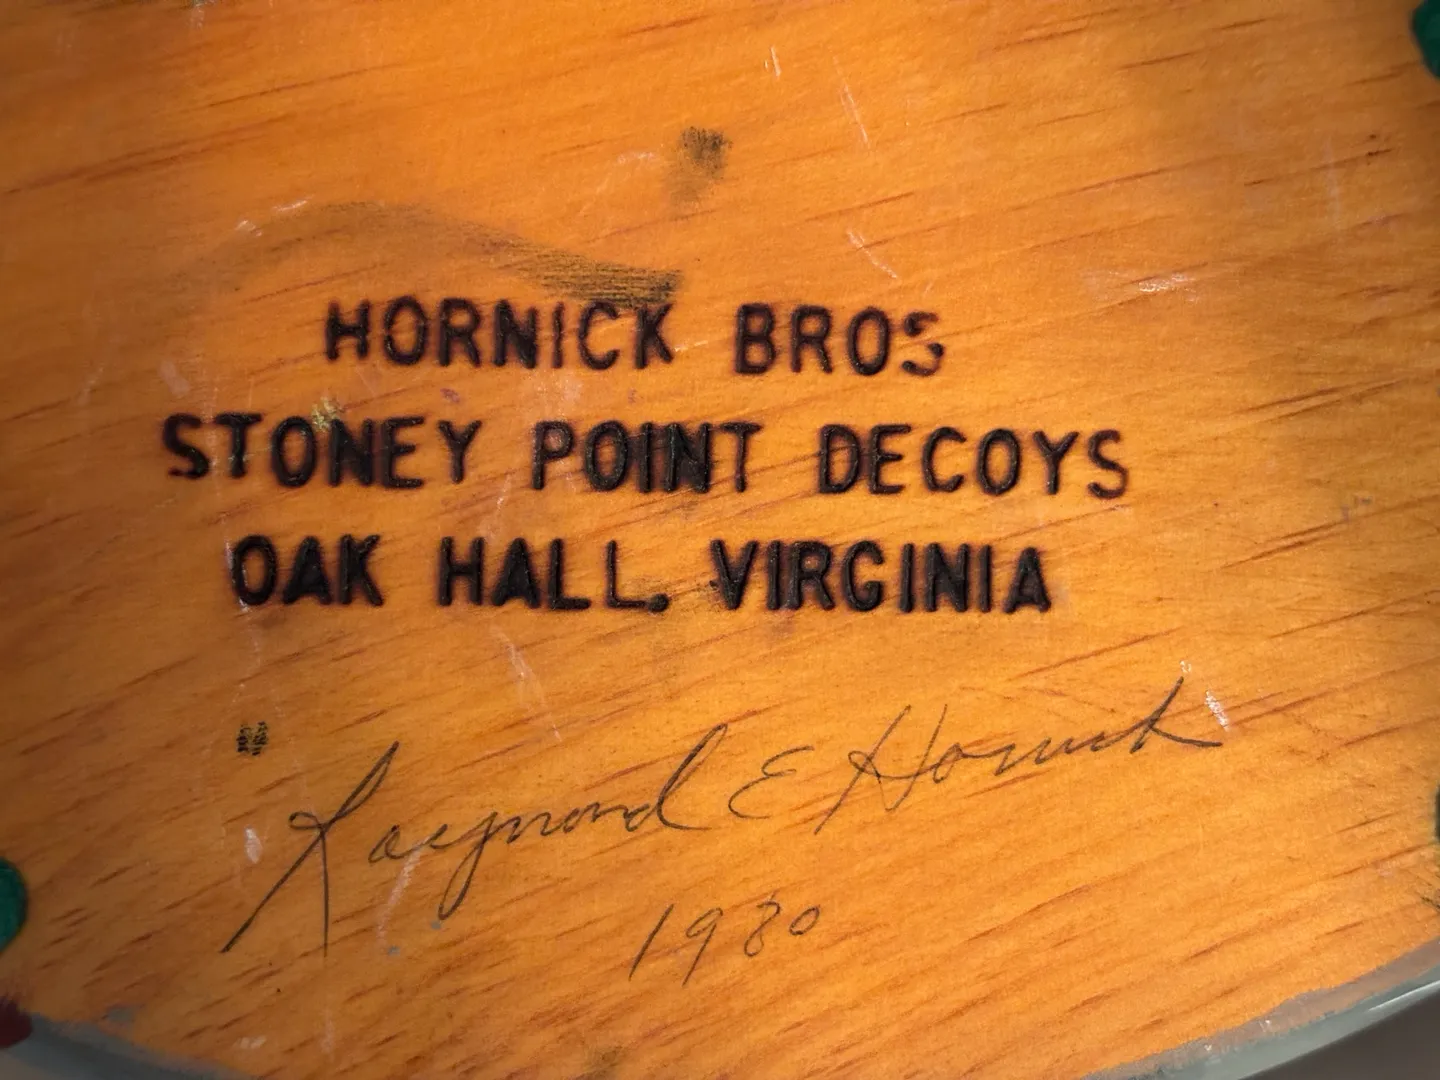 HORNICK BROS
STONEY POINT DECOYS
OAK HALL, VIRGINIA
Raymond E Hornick
1980